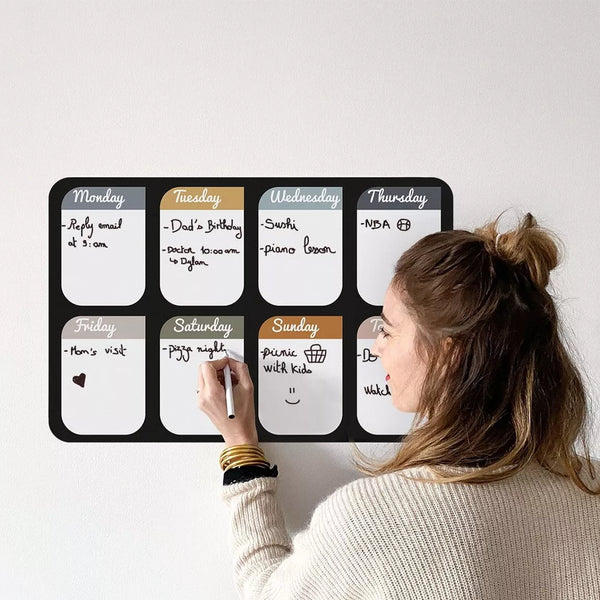 Monday
-Reply email
at 9:am
Tuesday
-Dad's Birthday
-Doctor 10:00am
↳Dylan
Wednesday
-Sushi
-piano lesson
Thursday
-NBA
Friday
-Mom's visit
Saturday
-pizza night
Sunday
-picnic
with kids
Watch